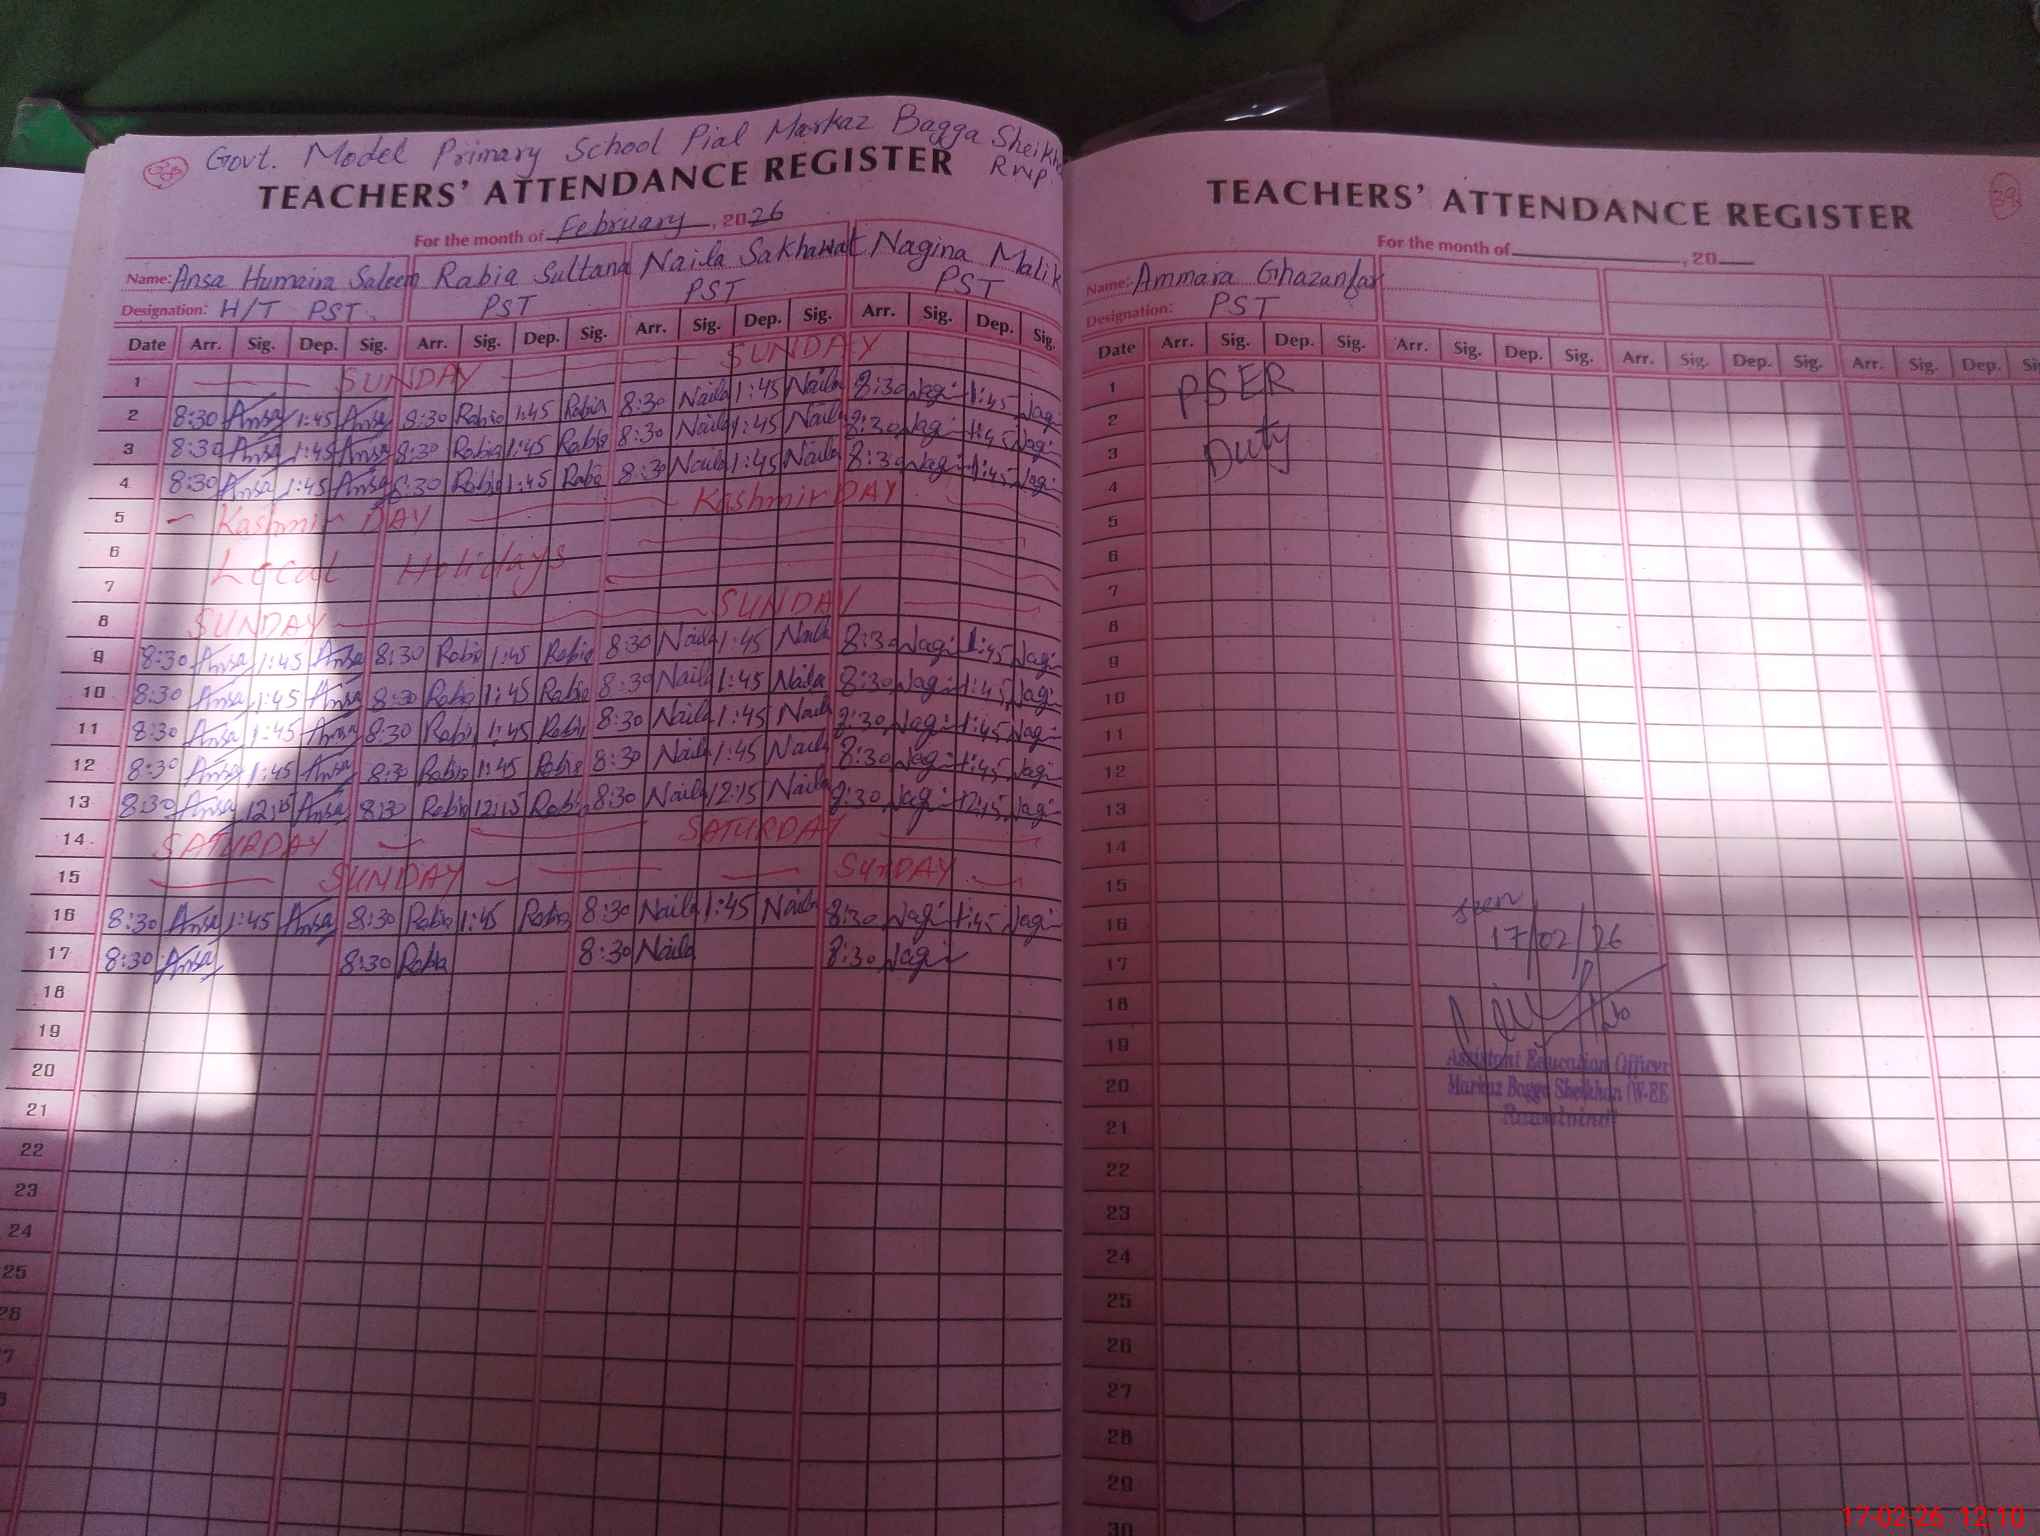 Govt. Model Primary School Pial Markaz Bagga Sheikha
RWP.
TEACHERS' ATTENDANCE REGISTER
For the month of February, 2026
Name: Ansa Humaira Saleem Rabia Sultana Naila Sakhawat Nagina Malik
Designation: H/T PST. PST PST PST
Date Arr. Sig. Dep. Sig. Arr. Sig. Dep. Sig. Arr. Sig. Dep. Sig. Arr. Sig. Dep. Sig.
1 SUNDAY SUNDAY
2 8:30 Ansa 1:45 Ansa 8:30 Rabia 1:45 Rabia 8:30 Naila 1:45 Naila 8:30 Nagi 1:45 Nagi
3 8:30 Ansa 1:45 Ansa 8:30 Rabia 1:45 Rabia 8:30 Naila 1:45 Naila 8:30 Nagi 1:45 Nagi
4 8:30 Ansa 1:45 Ansa 8:30 Rabia 1:45 Rabia 8:30 Naila 1:45 Naila 8:30 Nagi 1:45 Nagi
5 Kashmir DAY Kashmir DAY
6 Local Holidays
7
8 SUNDAY SUNDAY
9 8:30 Ansa 1:45 Ansa 8:30 Rabia 1:45 Rabia 8:30 Naila 1:45 Naila 8:30 Nagi 1:45 Nagi
10 8:30 Ansa 1:45 Ansa 8:30 Rabia 1:45 Rabia 8:30 Naila 1:45 Naila 8:30 Nagi 1:45 Nagi
11 8:30 Ansa 1:45 Ansa 8:30 Rabia 1:45 Rabia 8:30 Naila 1:45 Naila 8:30 Nagi 1:45 Nagi
12 8:30 Ansa 1:45 Ansa 8:30 Rabia 1:45 Rabia 8:30 Naila 1:45 Naila 8:30 Nagi 1:45 Nagi
13 8:30 Ansa 12:15 Ansa 8:30 Rabia 12:15 Rabia 8:30 Naila 12:15 Naila 8:30 Nagi Nagi
14 SATURDAY SATURDAY
15 SUNDAY SUNDAY
16 8:30 Ansa 1:45 Ansa 8:30 Rabia 1:45 Rabia 8:30 Naila 1:45 Naila 8:30 Nagi 1:45 Nagi
17 8:30 Ansa 8:30 Rabia 8:30 Naila 8:30 Nagi
18
19
20
21
22
23
24
25
26
39
TEACHERS' ATTENDANCE REGISTER
For the month of , 20
Name: Ammara Ghazanfar
Designation: PST
Date Arr. Sig. Dep. Sig. Arr. Sig. Dep. Sig. Arr. Sig. Dep. Sig. Arr. Sig. Dep.
1 PSER
2
3 Duty
4
5
6
7
8
9
10
11
12
13
14
15
16 seen 17/02/26
17
18
19
Assistant Education Officer
20 Markaz Bagga Sheikhan (W-EE
21 Rawalpindi
22
23
24
25
26
27
28
29
30
17-02-26 12:10